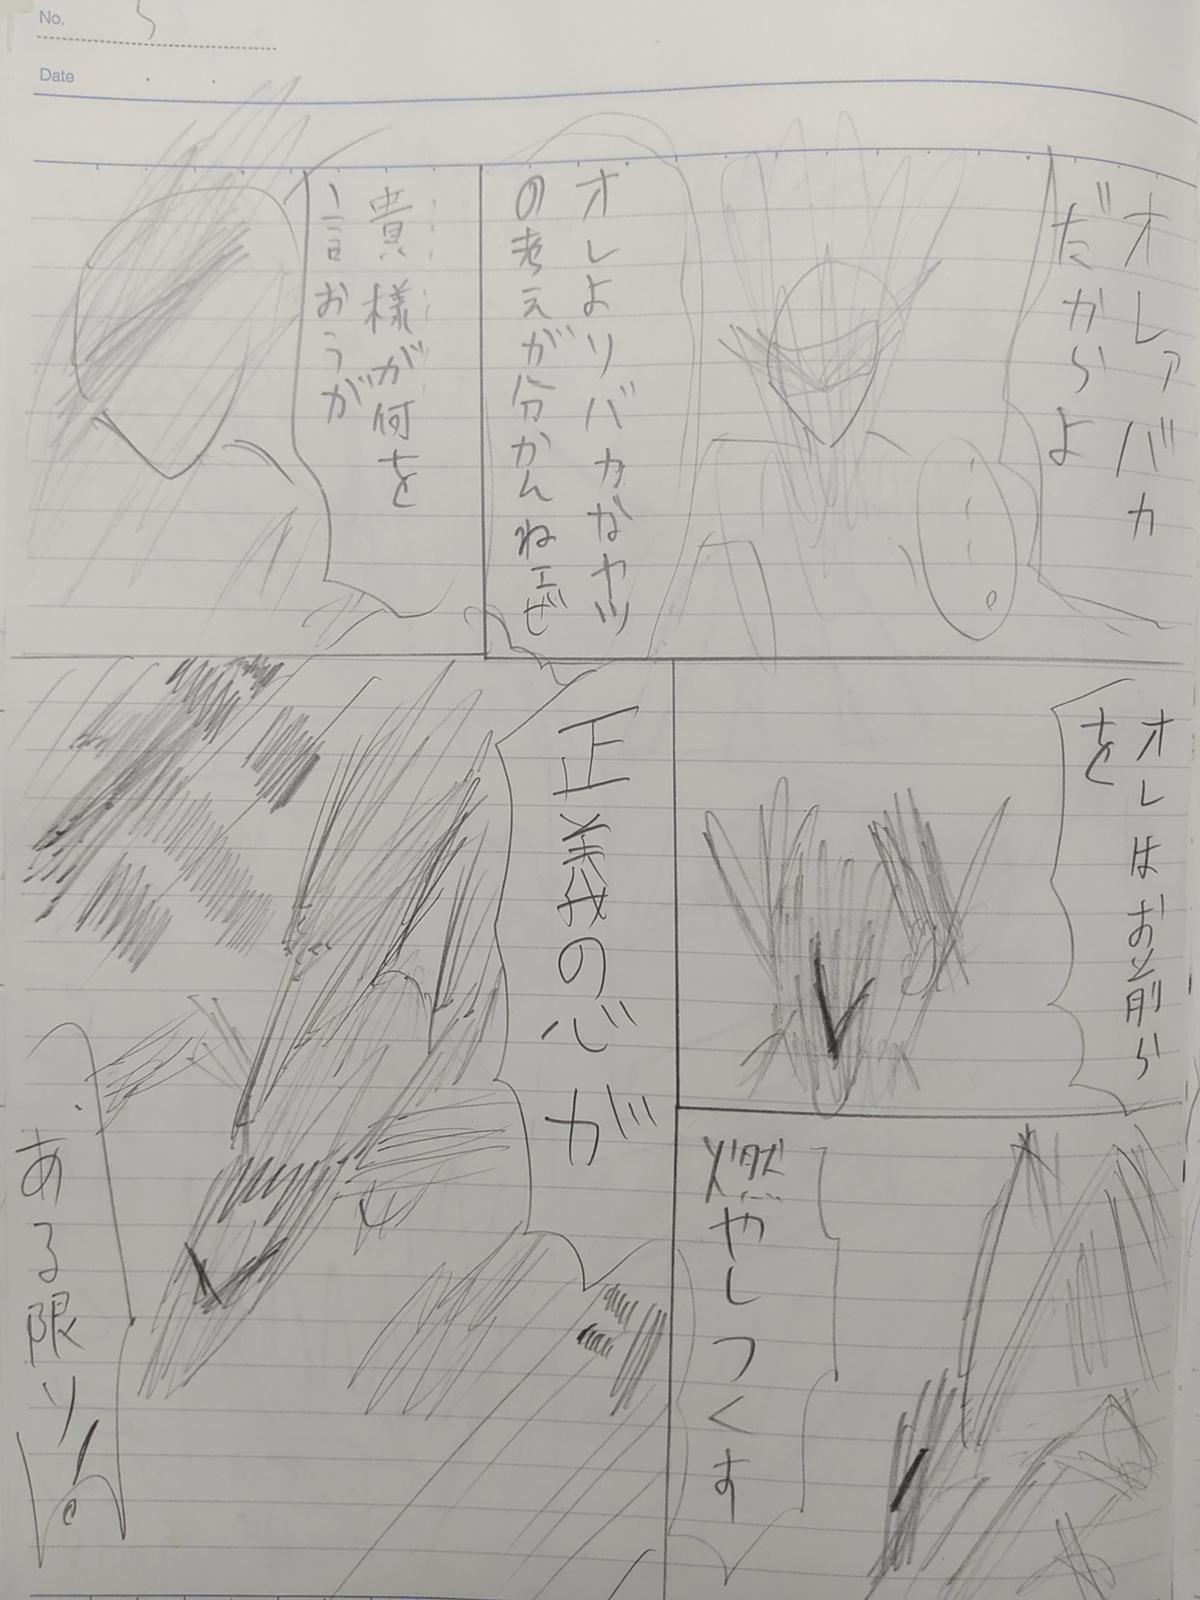 No. 5
Date
オレァバカ
だからよ
オレよりバカなヤツ
の考えが分かんねェぜ
貴様が何を
言おうが
オレはお前ら
を
燃やしつくす
正義の心が
ある限り